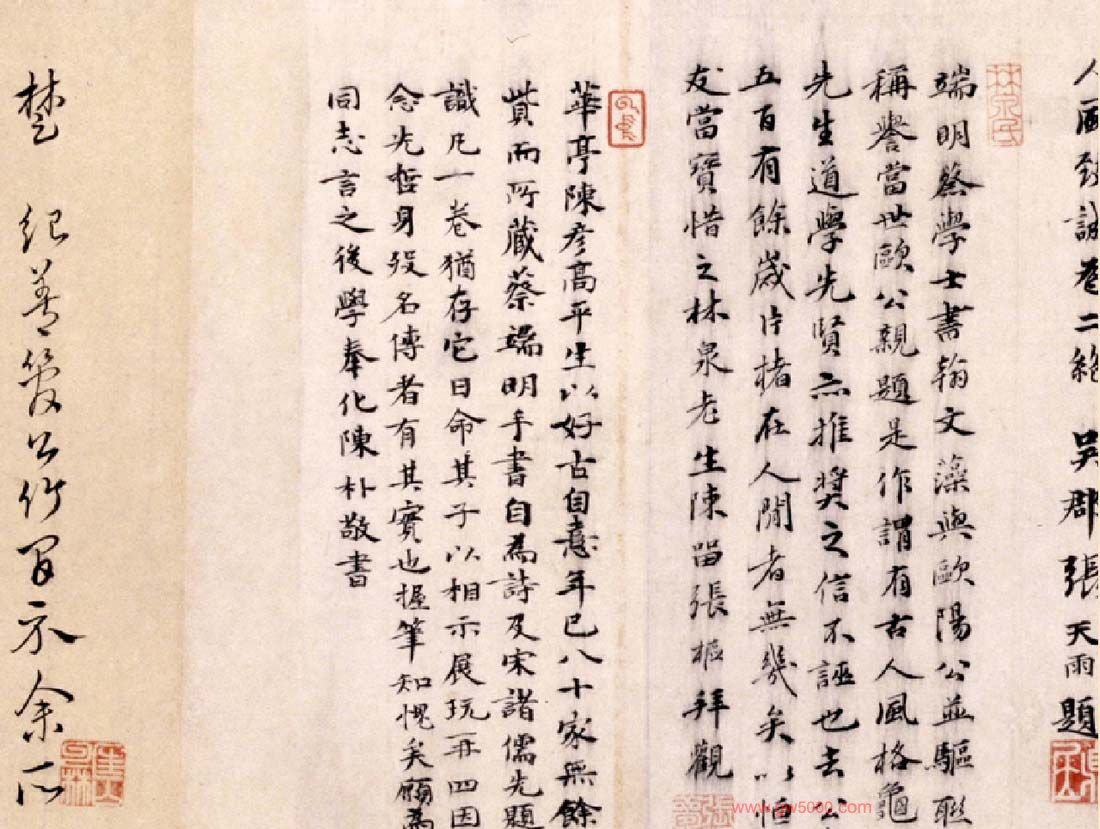 人風致詩卷二絕 吳郡張天雨題
端明蔡學士書翰文藻與歐陽公並驅聯
稱譽當世歐公親題是作謂有古人風格龜
先生道學先賢亦推獎之信不誣也去
五百有餘歲片楮在人間者無幾矣以恒
友當寶惜之林泉老生陳留張樞拜觀
華亭陳彥高平生以好古自意年已八十家無餘
貲而所藏蔡端明手書自為詩及宋諸儒先題
識凡一卷猶存它日命其子以相示展玩再四因
念先哲身歿名傳者有其實也握筆知愧矣願為
同志言之後學奉化陳朴敬書
楚 紀善 公竹 示余所
林泉民
www.yw5000.com